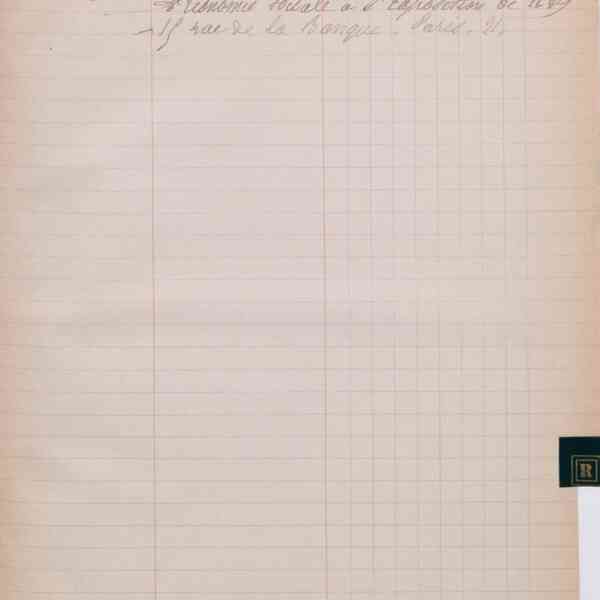 d'Economie sociale à l'Exposition de 1889
15 rue de la Banque - Paris. 2f
R